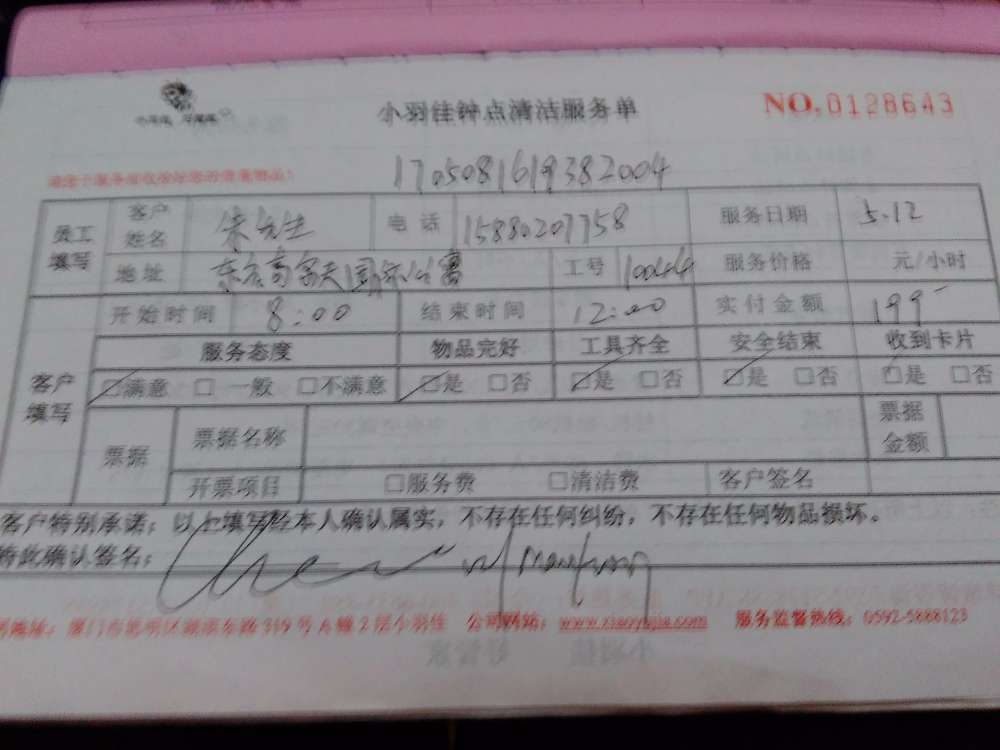 小羽佳钟点清洁服务单
NO.0128643
1705081619382004
员工填写 客户姓名 朱先生 电话 15880201758 服务日期 5.12
地址 国际公寓 工号 10044 服务价格 元/小时
客户填写 开始时间 8:00 结束时间 12:00 实付金额 199
服务态度 物品完好 工具齐全 安全结束 收到卡片
☑满意 □一般 □不满意 ☑是 □否 ☑是 □否 ☑是 □否 ☑是 □否
票据 票据名称 票据金额
开票项目 □服务费 □清洁费 客户签名
客户特别承诺：以上填写经本人确认属实，不存在任何纠纷，不存在任何物品损坏。
特此确认签名：
厦门市思明区湖滨东路319号A幢2层小羽佳 公司网站：www.xiaoyujia.com 服务监督热线：0592-5888123